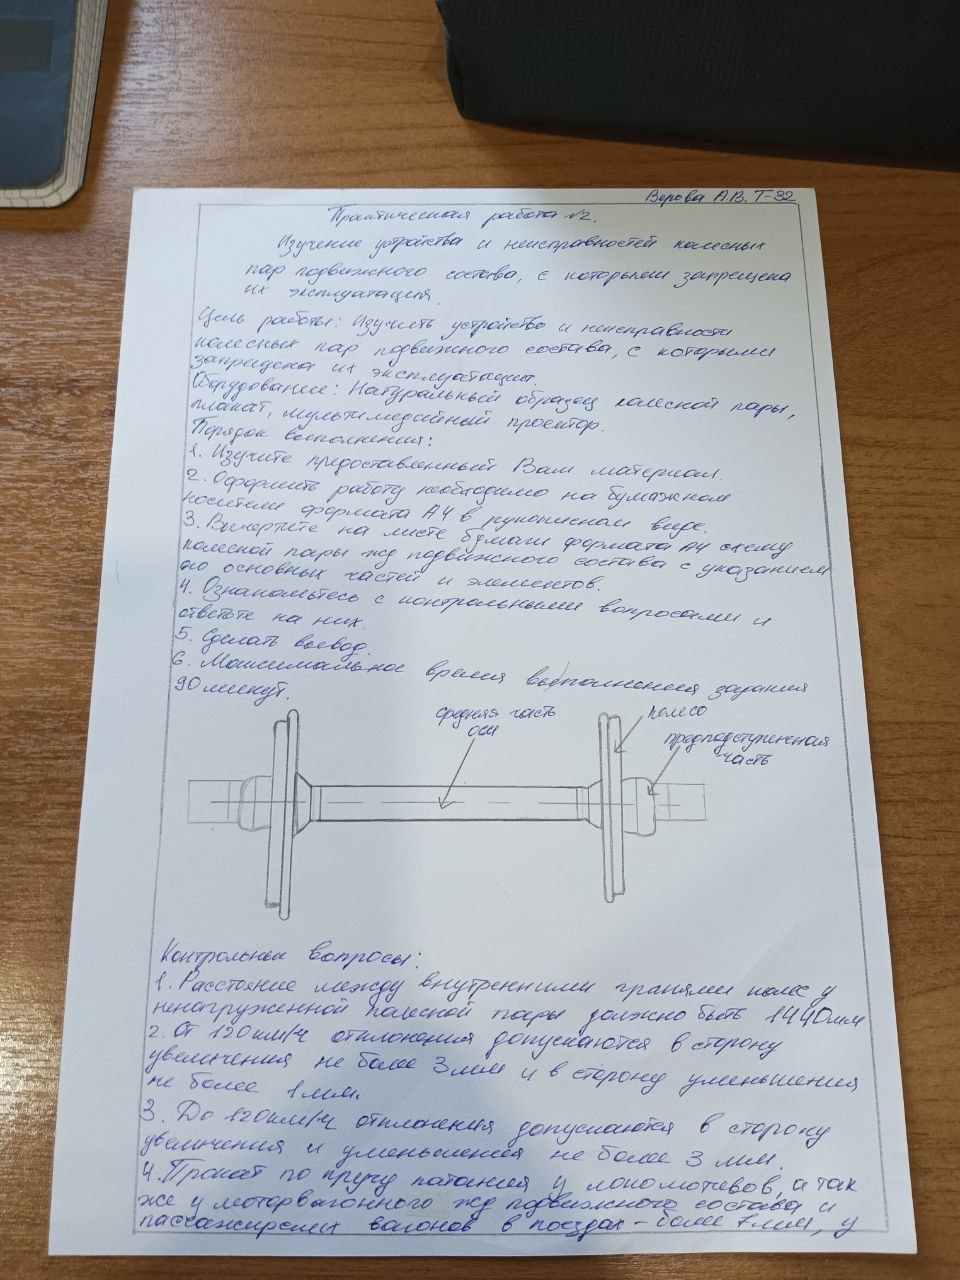 Верова А.В. Т-32
Практическая работа №2.
Изучение устройства и неисправностей колесных
пар подвижного состава, с которыми запрещена
их эксплуатация.
Цель работы: Изучить устройство и неисправности
колесных пар подвижного состава, с которыми
запрещена их эксплуатация.
Оборудование: Натуральный образец колесной пары,
плакат, мультимедийный проектор.
Порядок выполнения:
1. Изучите предоставленный Вам материал.
2. Оформить работу необходимо на бумажном
носителе формата А4 в рукописном виде.
3. Вычертите на листе бумаги формата А4 схему
колесной пары жд подвижного состава с указанием
его основных частей и элементов.
4. Ознакомьтесь с контрольными вопросами и
ответьте на них.
5. Сделать вывод.
6. Максимальное время выполнения задания
90 минут.
средняя часть
оси
колесо
предподступичная
часть
Контрольные вопросы:
1. Расстояние между внутренними гранями колес у
ненагруженной колесной пары должно быть 1440мм
2. От 120км/ч отклонения допускаются в сторону
увеличения не более 3мм и в сторону уменьшения
не более 1мм.
3. До 120км/ч отклонения допускаются в сторону
увеличения и уменьшения не более 3 мм.
4. Прокат по кругу катания у локомотивов, а так
же у моторвагонного жд подвижного состава и
пассажирских вагонов в поездах - более 7мм, у